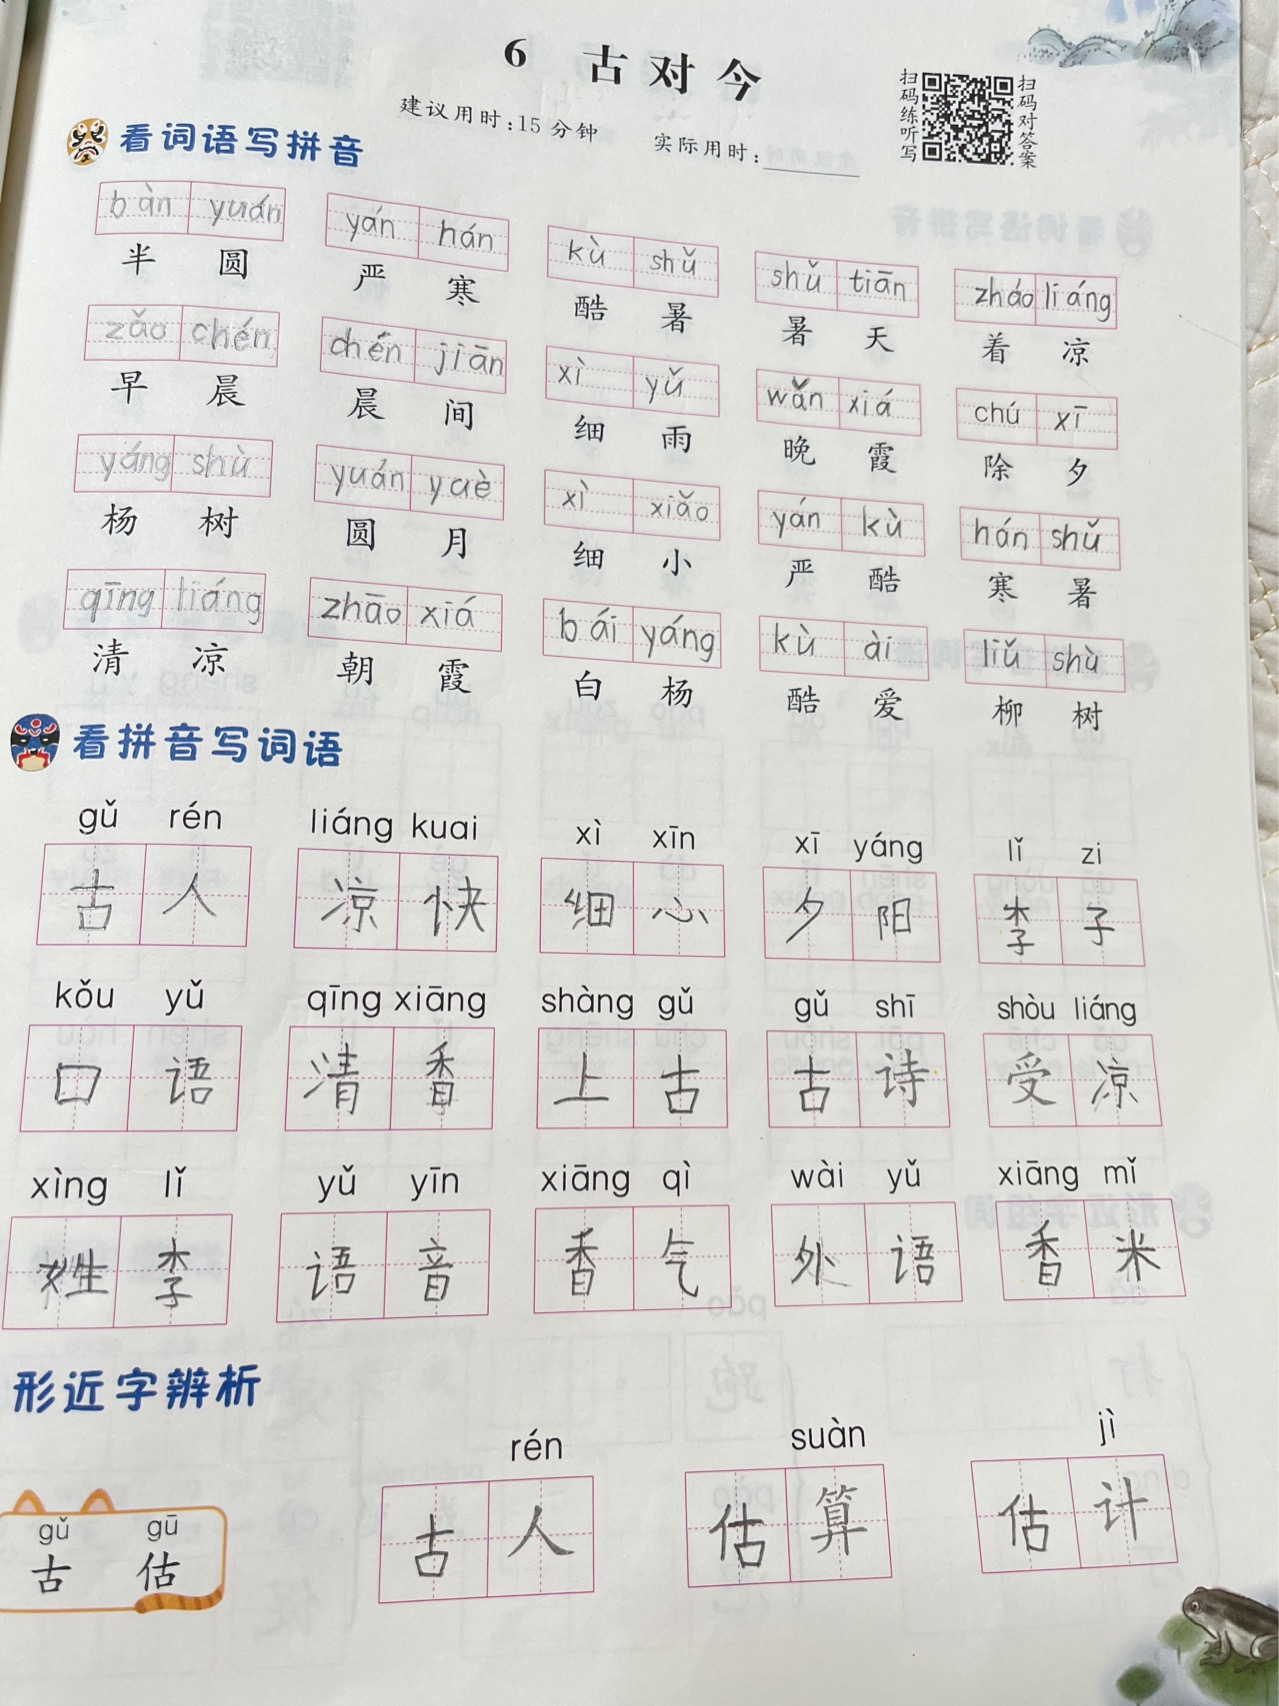 6 古对今
建议用时:15分钟 实际用时:
扫码练听写
扫码对答案
看词语写拼音
bàn yuán yán hán kù shǔ shǔ tiān zháo liáng
半圆 严寒 酷暑 暑天 着凉
zǎo chén chén jiān xì yǔ wǎn xiá chú xī
早晨 晨间 细雨 晚霞 除夕
yáng shù yuán yuè xì xiǎo yán kù hán shǔ
杨树 圆月 细小 严酷 寒暑
qīng liáng zhāo xiá bái yáng kù ài liǔ shù
清凉 朝霞 白杨 酷爱 柳树
看拼音写词语
gǔ rén liáng kuai xì xīn xī yáng lǐ zi
古人 凉快 细心 夕阳 李子
kǒu yǔ qīng xiāng shàng gǔ gǔ shī shòu liáng
口语 清香 上古 古诗 受凉
xìng lǐ yǔ yīn xiāng qì wài yǔ xiāng mǐ
姓李 语音 香气 外语 香米
形近字辨析
rén suàn jì
gǔ gū
古 估
古人 估算 估计